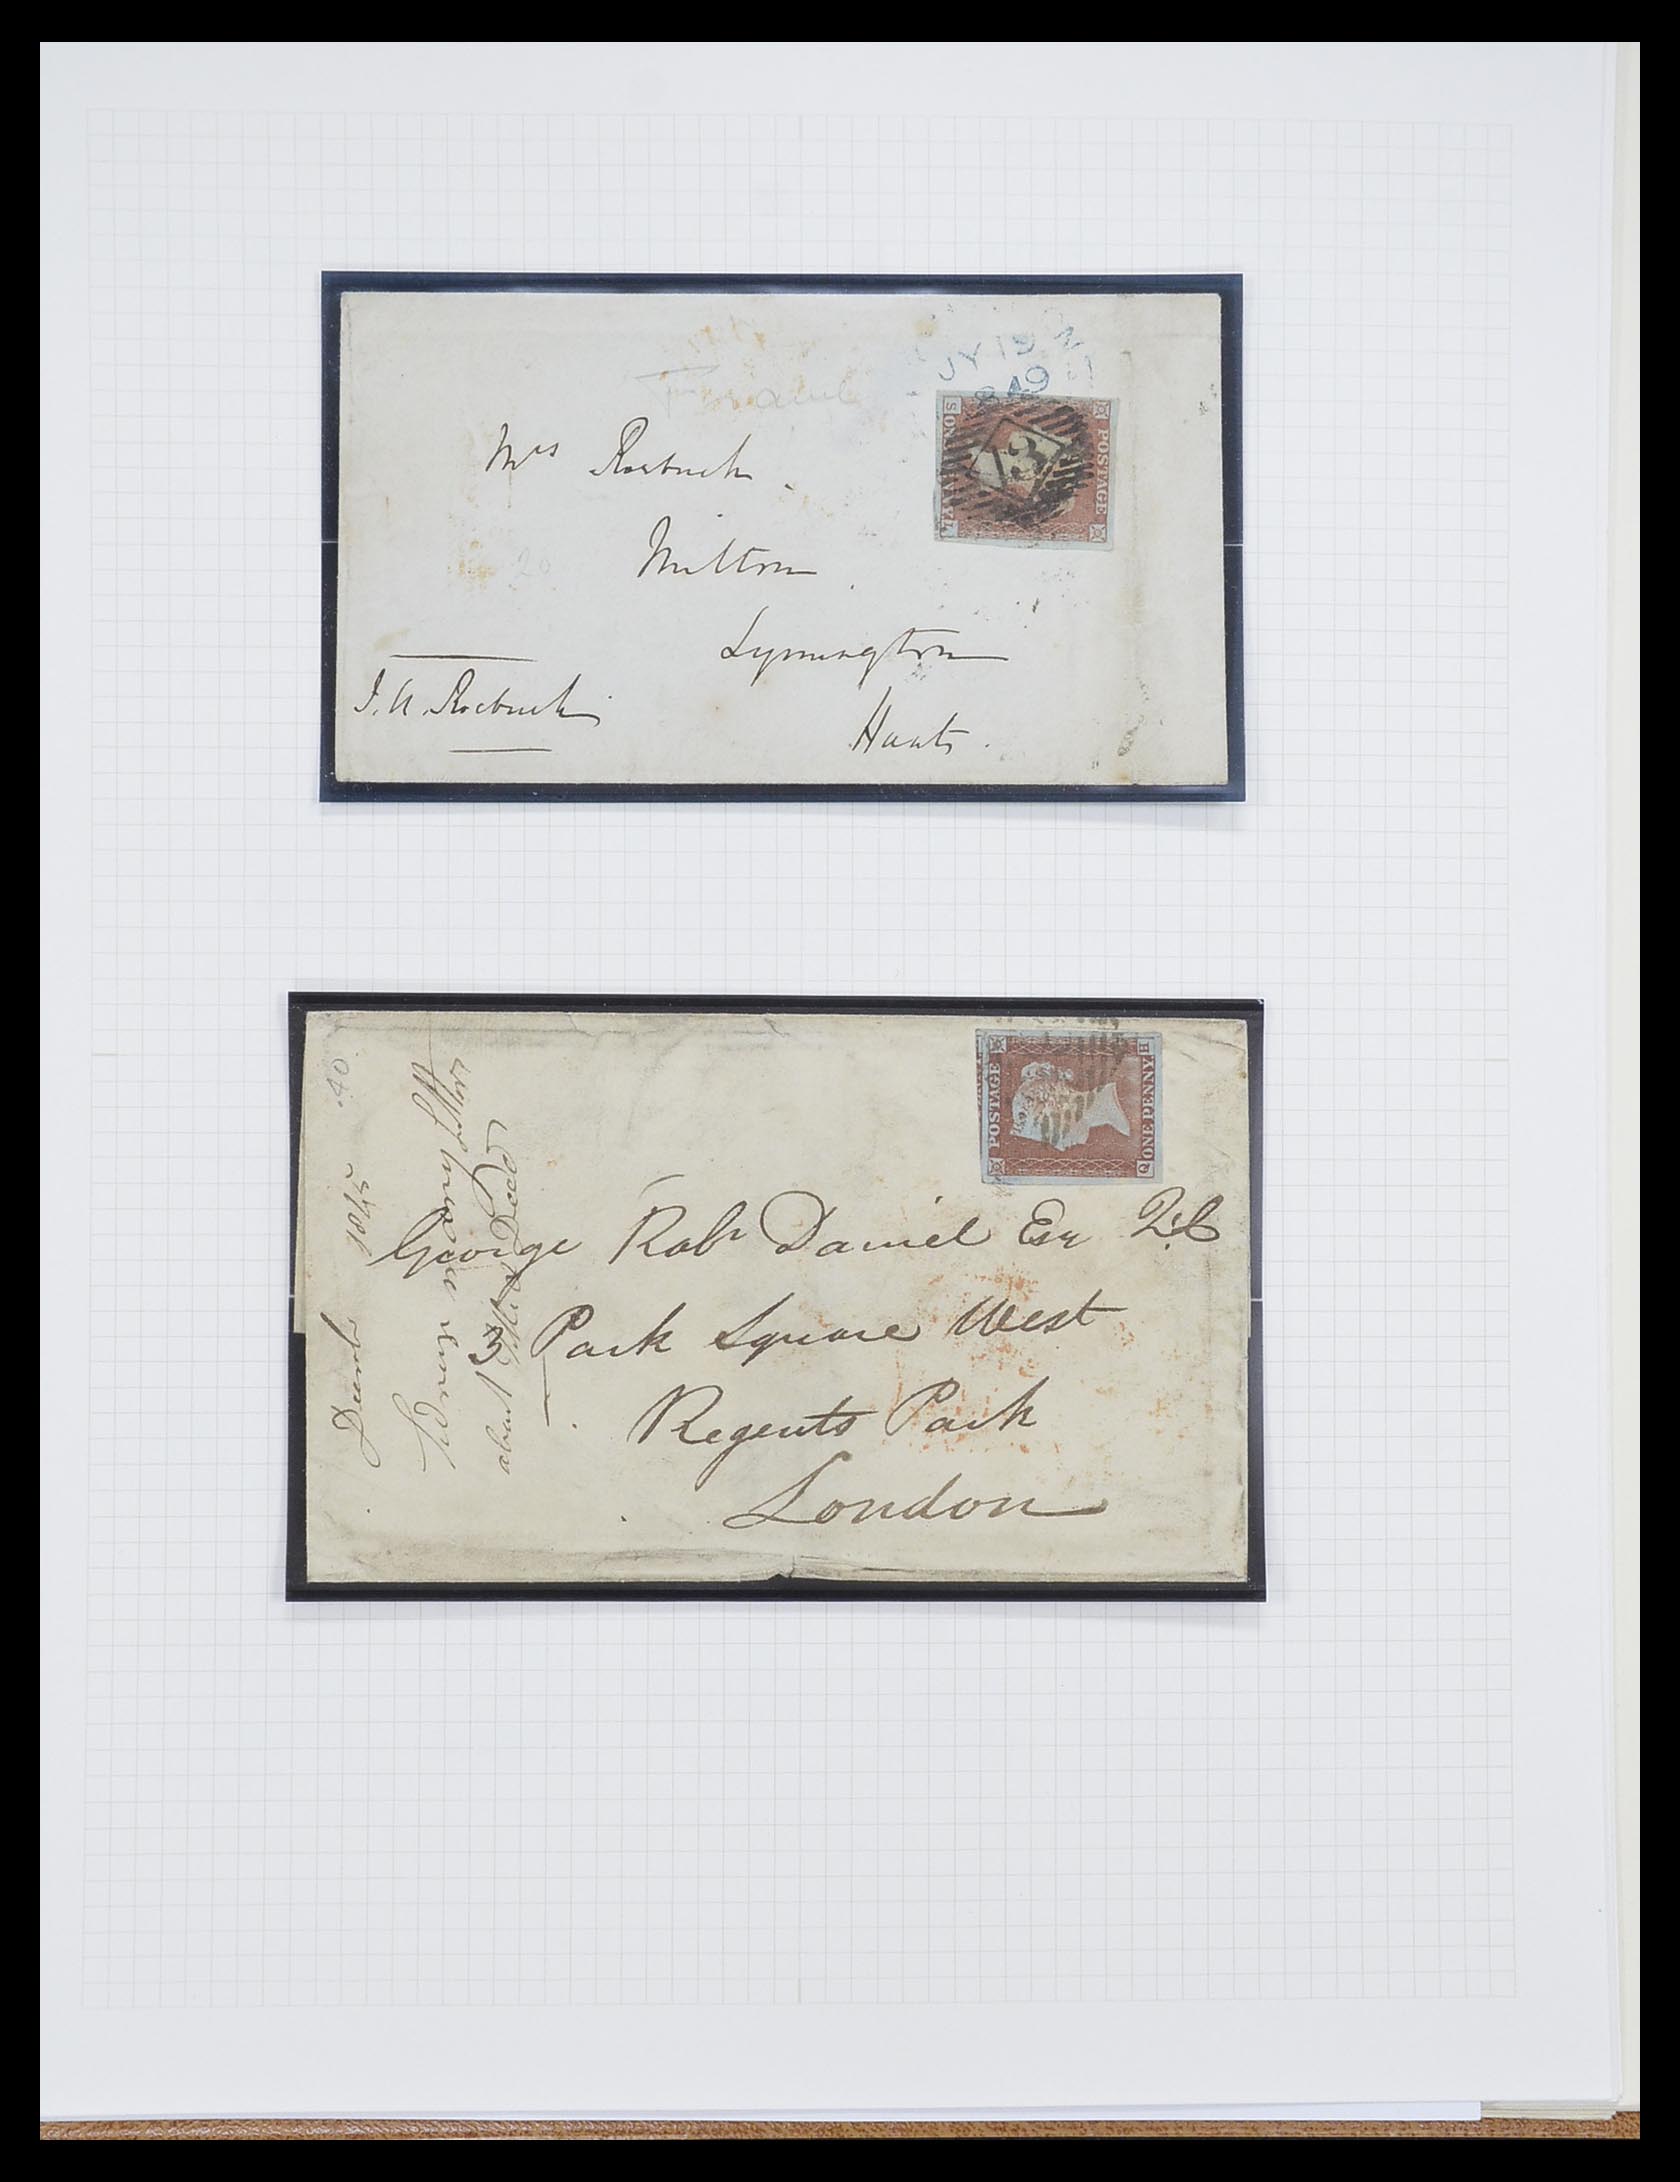 JY 19
849
POSTAGE
ONE PENNY
S
13
Mrs Roebuck.
Milton
Lymington
Hants.
J. A. Roebuck
20
.40
POSTAGE
ONE PENNY
Q H
George Robt Daniel Esq Q.C
3 Park Square West
Regents Park
London
Decembr 1845
many Letters
about